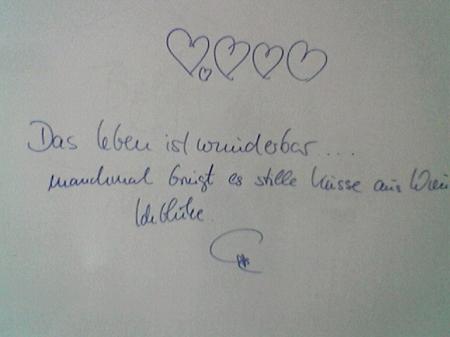 Das leben ist wunderbar...
manchmal bringt es stille küsse aus Wien